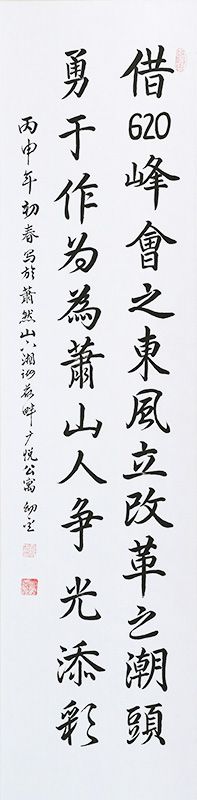 借G20峰會之東風立改革之潮頭
勇于作为為蕭山人争光添彩
丙申年初春写於蕭然山下湘湖
畔广悦公寓